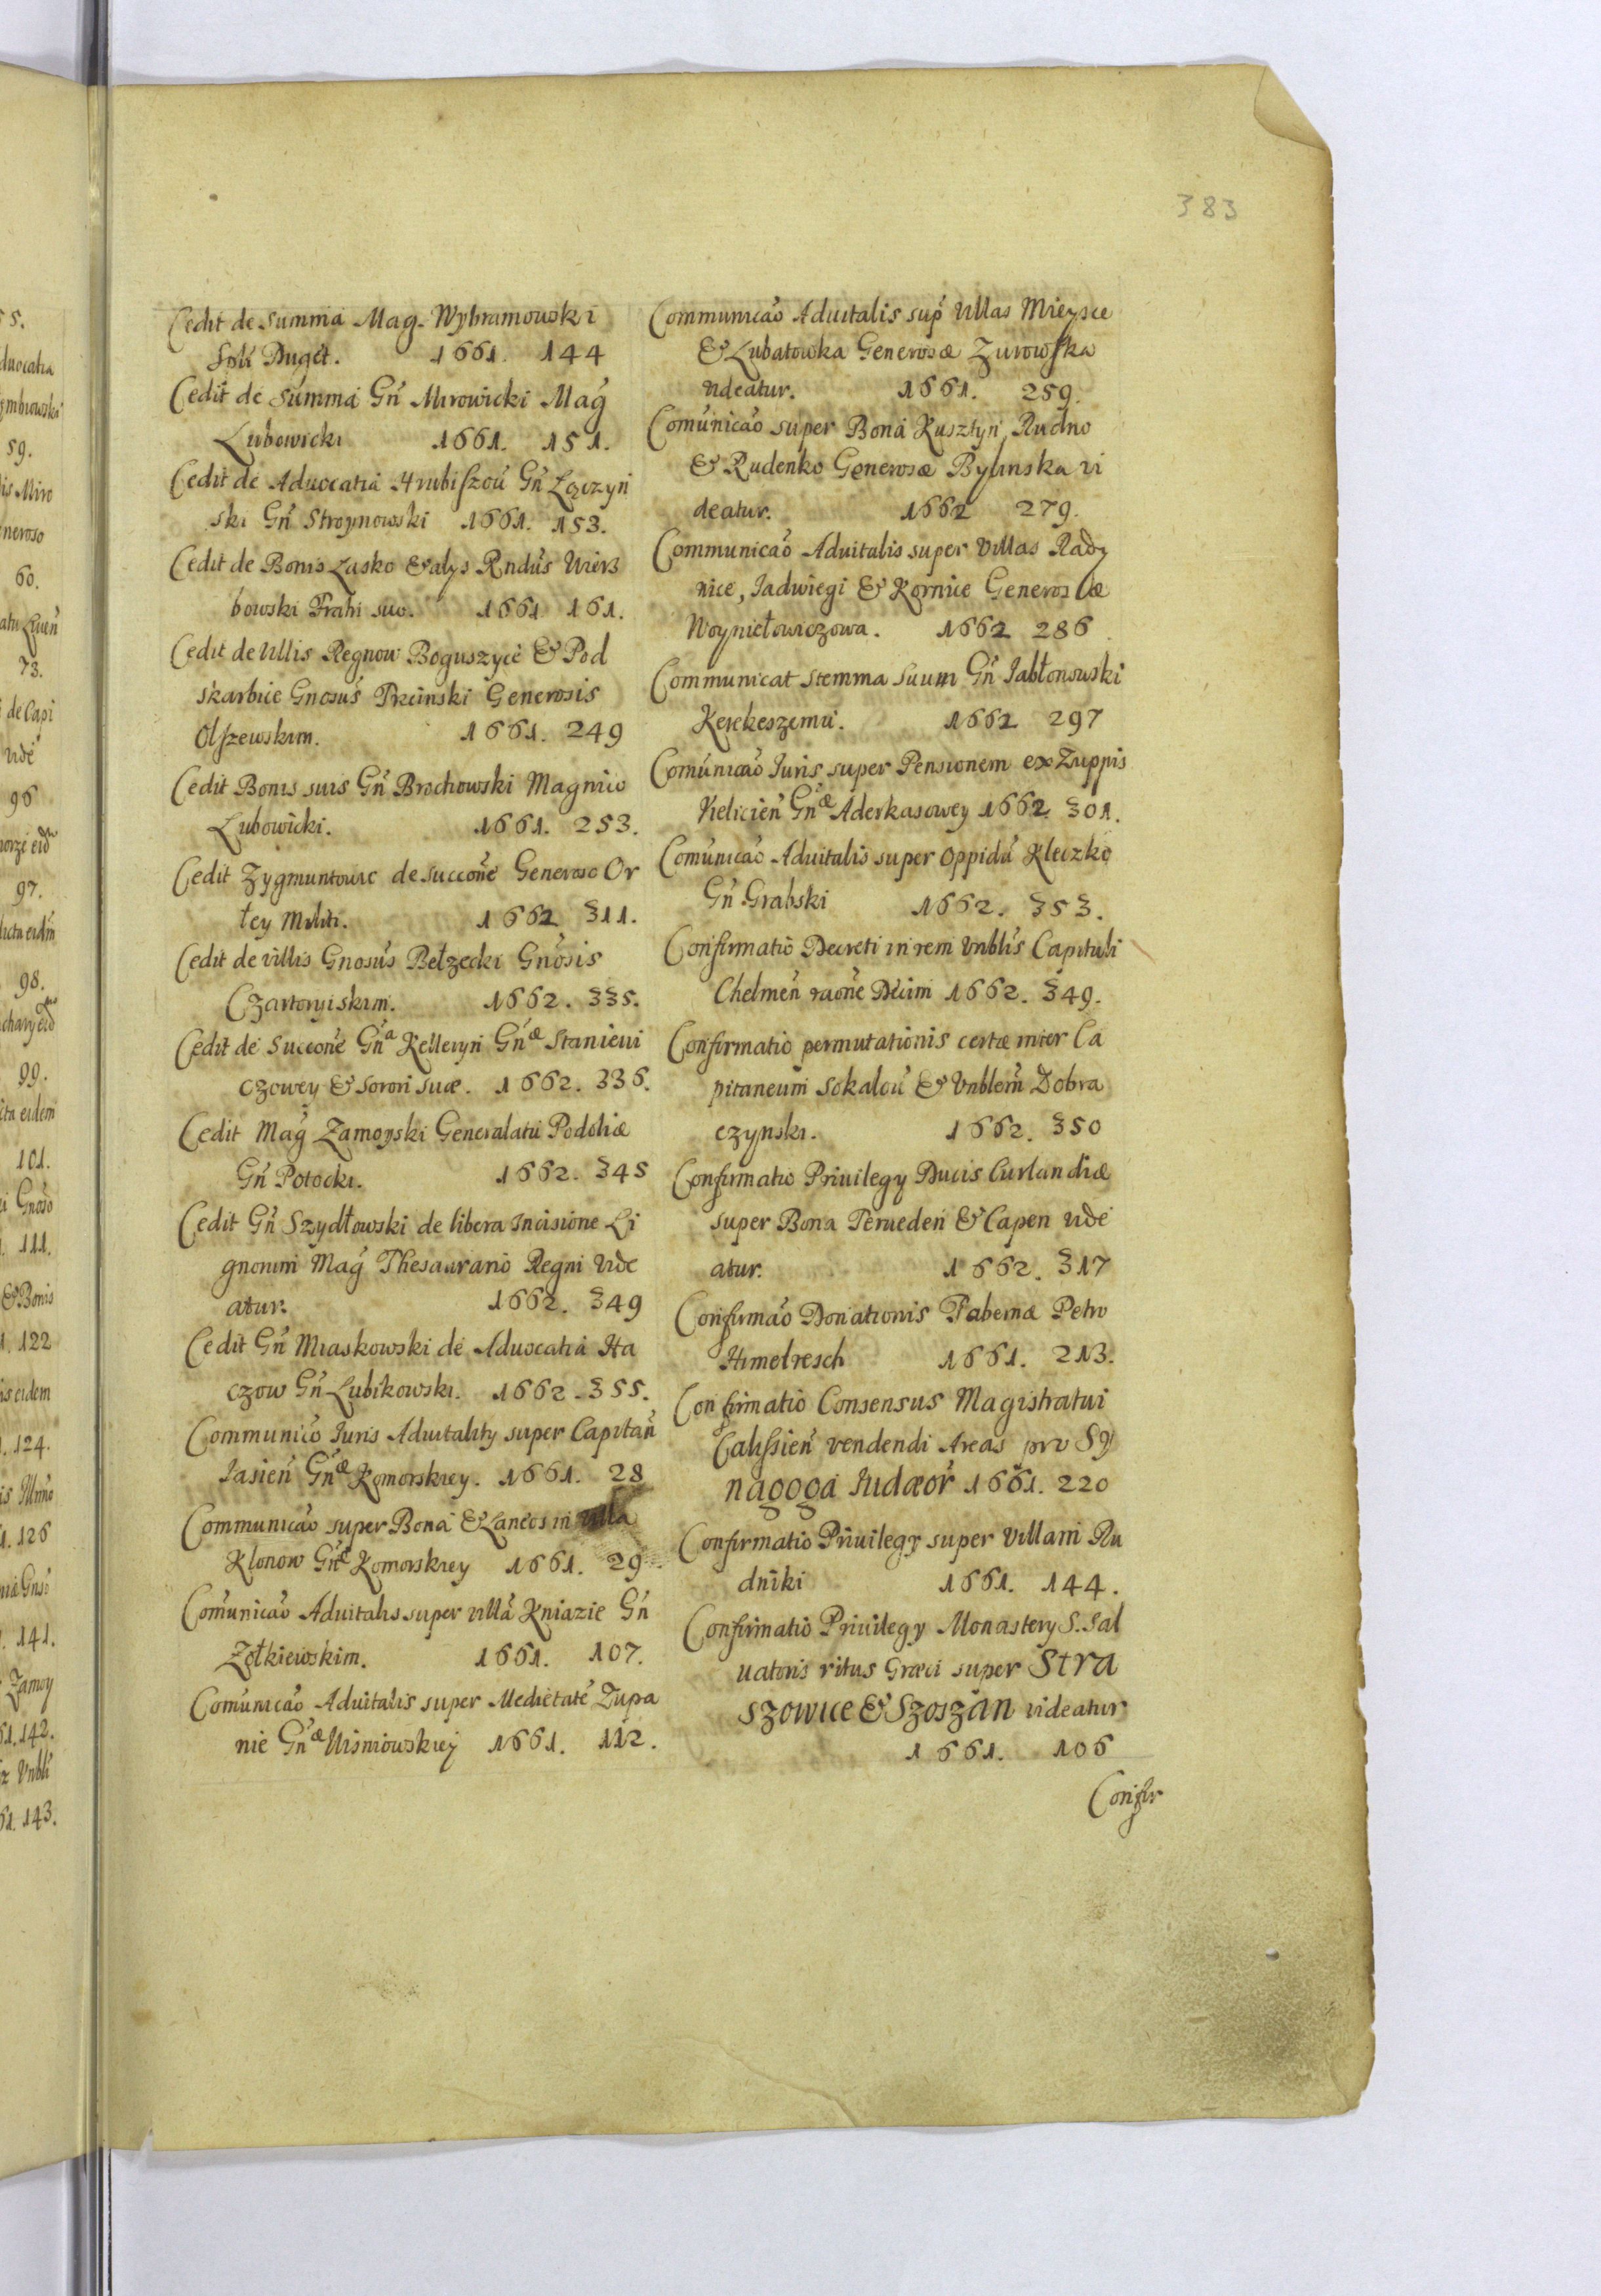 383
Cedit de Summa Mag. Wybramowski
Spli Duget. 1661. 144
Cedit de Summa Gn̄ Mirowicki Mag̃
Lubowicki 1661. 151.
Cedit de Aduocatia Hrubiszou Gn̄ Łączyń
ski Gn̄ Stroynowski 1661. 153.
Cedit de Bonis Lasko & alys Rndūs Wierz
bowski Fratri suo. 1661 161.
Cedit de Villis Regnow Boguszyce & Pod
skarbice Gnosus Trcinski Generosis
Olszewskim. 1661. 249
Cedit Bonis suis Gn̄ Brochowski Magnico
Lubowicki. 1661. 253.
Cedit Zygmuntowic de succone Generoso Or
łey Militi. 1662 311.
Cedit de villis Gnosus Bełzecki Gnosis
Czartoryiskim. 1662. 335.
Cedit de Succone Gn̄a Kelleryn Gn̄æ Staniewi
czowey & Sorori suæ. 1662. 336.
Cedit Mag̃ Zamoyski Generalatu Podoliæ
Gn̄ Potocki. 1662. 345
Cedit Gn̄ Szydłowski de libera Incisione Li
gnorum Mag̃ Thesaurario Regni vide
atur. 1662. 349
Cedit Gn̄ Miaskowski de Aduocatia Ha
czow Gn̄ Lubikowski. 1662. 355.
Communico Iuris Aduitality super Capitan̄
Jasien̄ Gn̄æ Komorskiey. 1661. 28
Communicaō super Bona & Laneos in villa
Klonow Gn̄æ Komorskiey 1661. 29.
Com̄unicaō Aduitalis super villā Kniazie Gn̄
Zołkiewskim. 1661. 107.
Com̄unicaō Aduitalis super Medietatē Zupa
nie Gn̄æ Wisniowskiey 1661. 112.
Communicaō Aduitalis sup̄ Villas Mieysce
& Lubatowka Generosæ Zurowska
videatur. 1661. 259.
Com̄unicaō super Bona Kusztyn, Rudno
& Rudenko Generosæ Bylinska vi
deatur. 1662 279.
Communicaō Aduitalis super Villas Rady
nice, Jadwiegi & Kornice Generosæ
Woyniełowiczowa. 1662 286.
Communicat stemma suum Gn̄ Jabłonowski
Kerekeszemu. 1662 297
Com̄unicaō Iuris super Pensionem ex Zuppis
Vielicien̄ Gn̄æ Aderkasowey 1662 301.
Com̄unicaō Aduitalis super Oppidū Kleczko
Gn̄ Grabski 1662. 353.
Confirmatio Decreti in rem Vnblis Capituli
Chelmen̄ raōne Decim 1662. 349.
Confirmatio permutationis certæ inter Ca
pitaneum Sokalou & Vnblem Dobra
czynski. 1662. 350
Confirmatio Priuilegy Ducis Curlandiæ
super Bona Perueden & Capen vide
atur. 1662. 317
Confirmaō Donationis Tabernæ Petro
Himelresch 1661. 213.
Confirmatio Consensus Magistratui
Calissien̄ vendendi Areas pro Sy
nagoga Iudæor̄ 1661. 220
Confirmatio Priuilegy super Villam Ru
dniki 1661. 144.
Confirmatio Priuilegy Monastery S. Sal
uatoris ritus Græci super Stra
szowice & Szoszan videatur
1661. 106
Confir